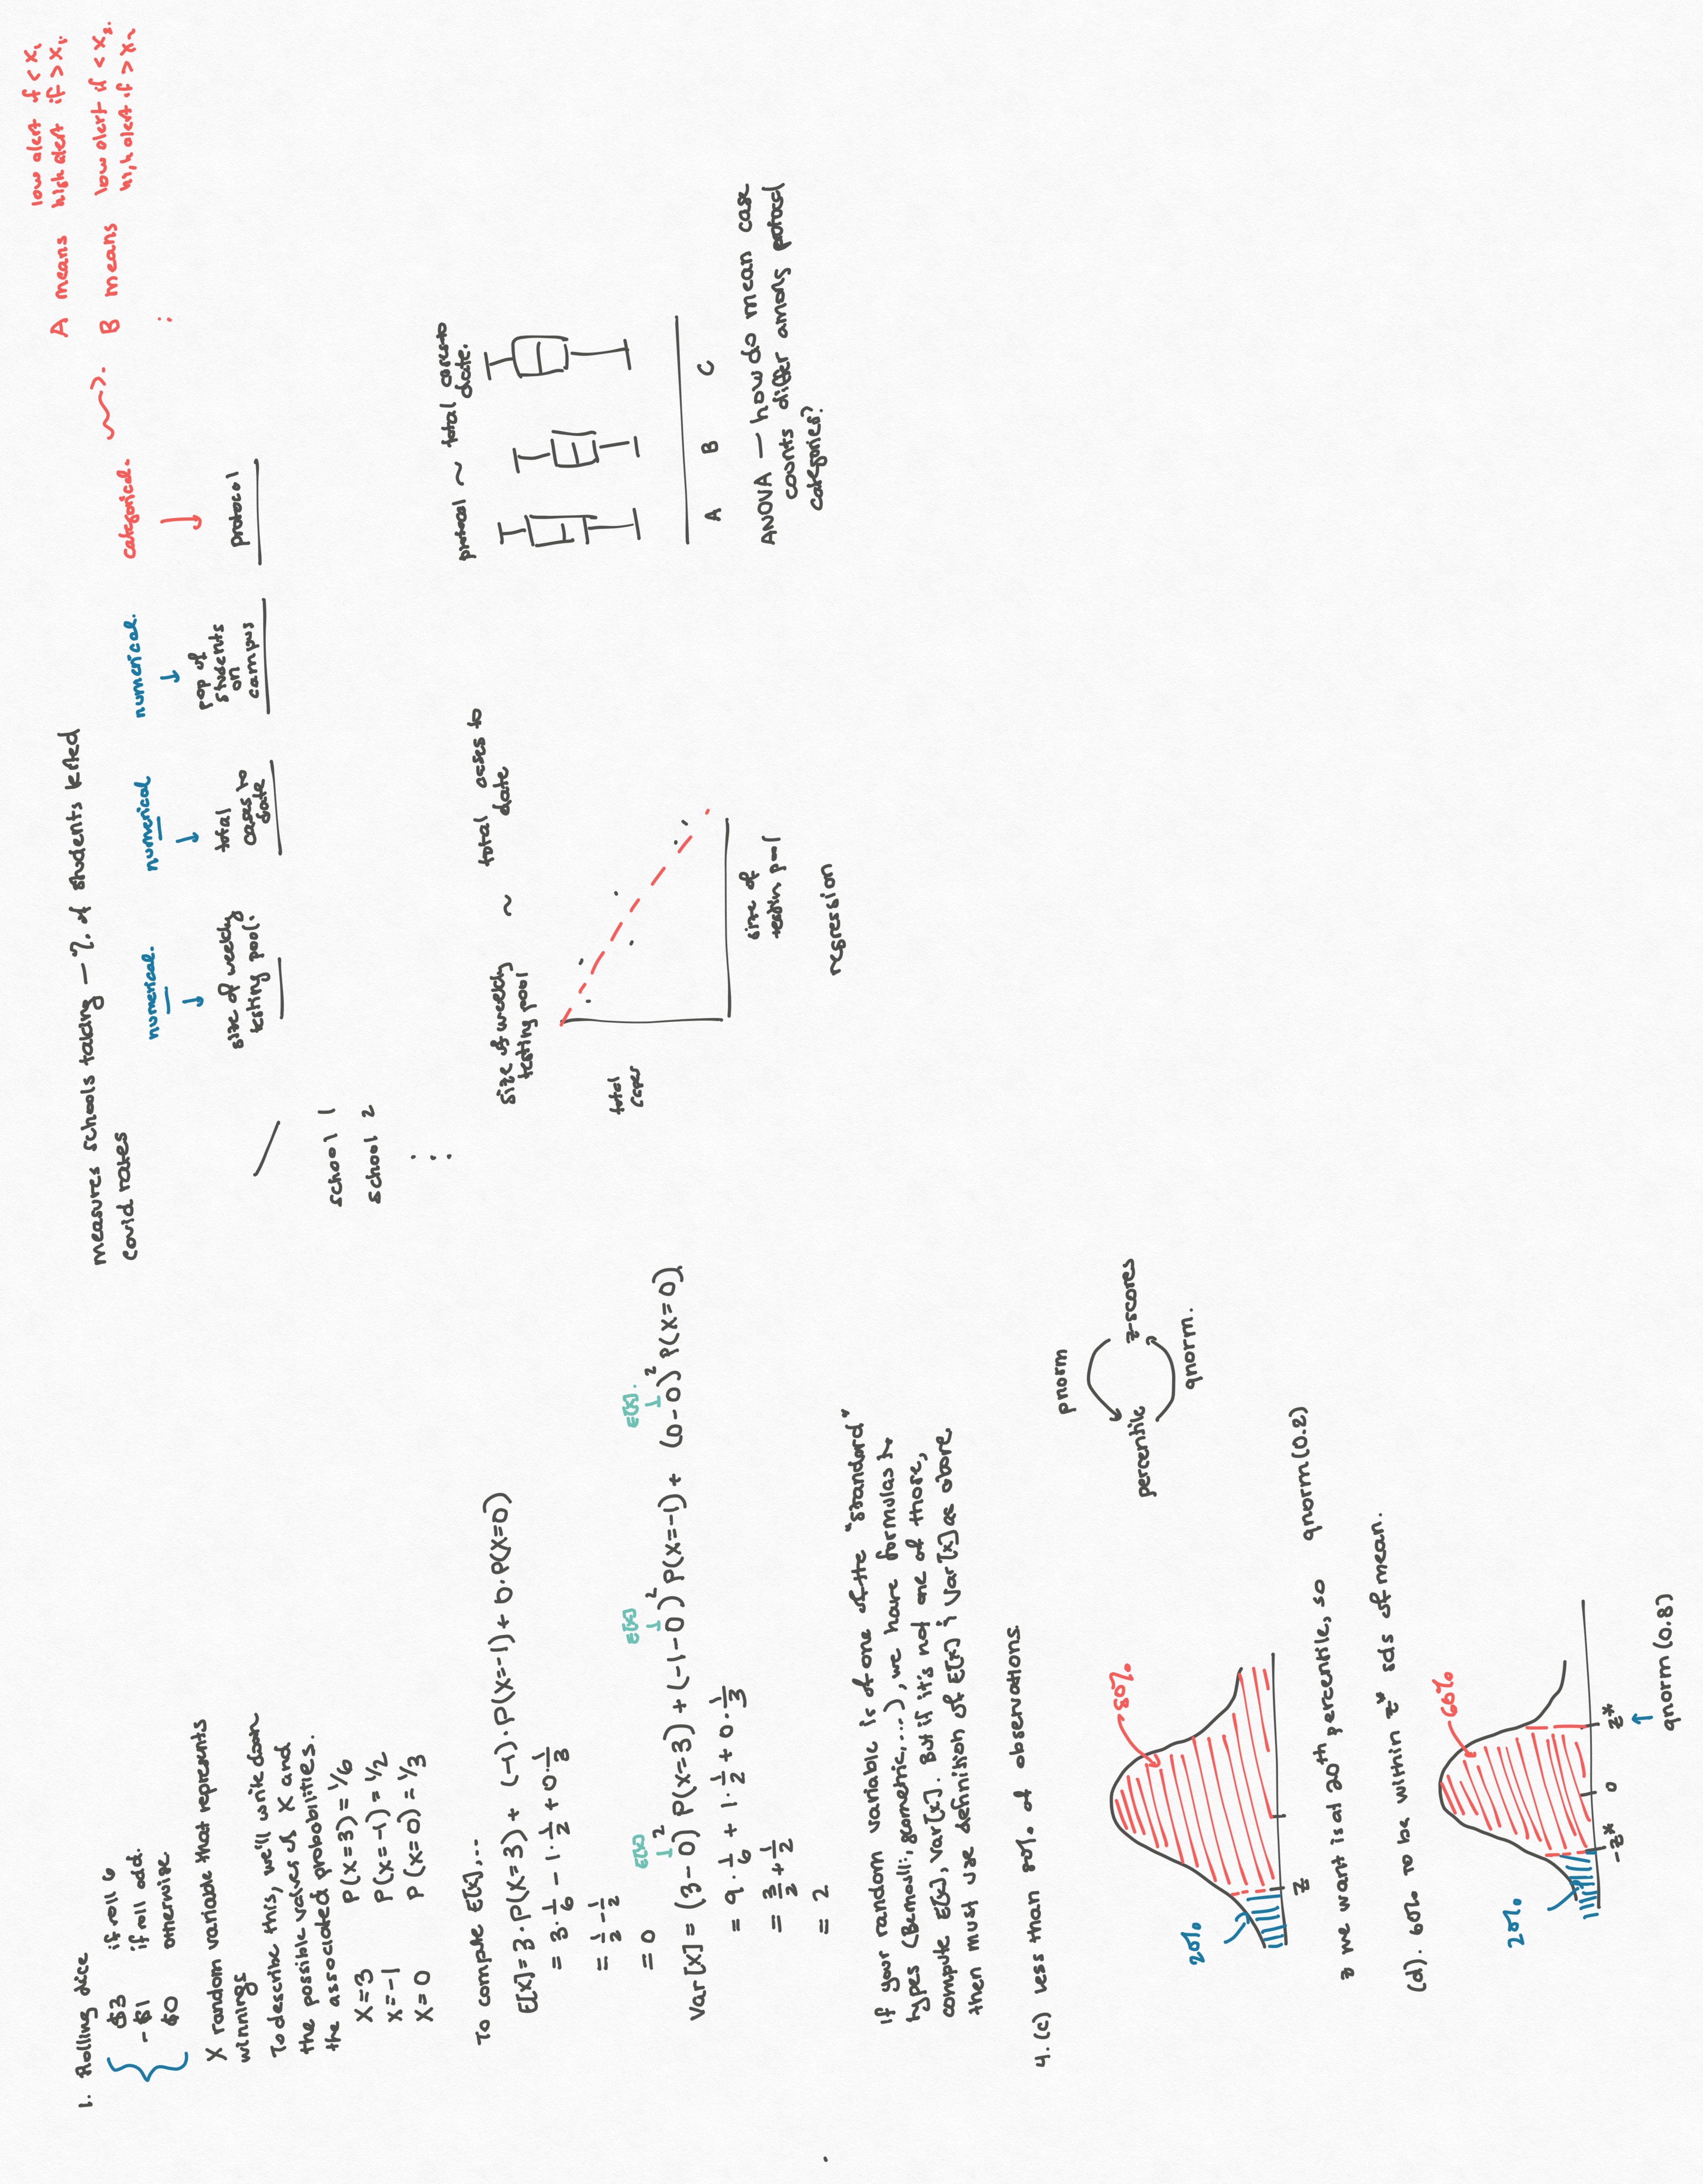 1. Rolling dice
$3 if roll 6
-$1 if roll odd.
$0 otherwise.
X random variable that represents
winnings
To describe this, we'll write down
the possible values of X and
the associated probabilities.
X=3 P(X=3) = 1/6
X=-1 P(X=-1) = 1/2
X=0 P(X=0) = 1/3
To compute E[X],...
E[X]= 3·P(X=3) + (-1)·P(X=-1) + 0·P(X=0)
= 3·1/6 - 1·1/2 + 0·1/3
= 1/2 - 1/2
= 0
E[X] E[X] E[X].
Var[X] = (3-0)² P(X=3) + (-1-0)² P(X=-1) + (0-0)² P(X=0).
= 9·1/6 + 1·1/2 + 0·1/3
= 3/2 + 1/2
= 2
If your random variable is of one of the "standard"
types (Bernoulli, geometric,...), we have formulas to
compute E[X], Var[X]. But if it's not one of those,
then must use definition of E[X] & Var[X] as above.
4. (c) less than 80% of observations.
80%
20%
z
pnorm
percentile z-scores
qnorm.
z we want is at 20th percentile, so qnorm(0.2)
(d). 60% to be within z* sds of mean.
60%
20%
-z* 0 z*
qnorm(0.8)
measures schools taking — % of students tested
covid rates
numerical. numerical numerical. categorical.
size of weekly
testing pool.
total
cases to
date
pop of
students
on
campus
protocol
A means low alert if < X₁
high alert if > X₁.
B means low alert if < X₂.
high alert if > X₂
:
school 1
school 2
size of weekly
testing pool ~ total cases to
date
total
cases
size of
testin pool
regression
protocol ~ total cases to
date.
A B C
ANOVA — how do mean case
counts differ among protocol
categories?